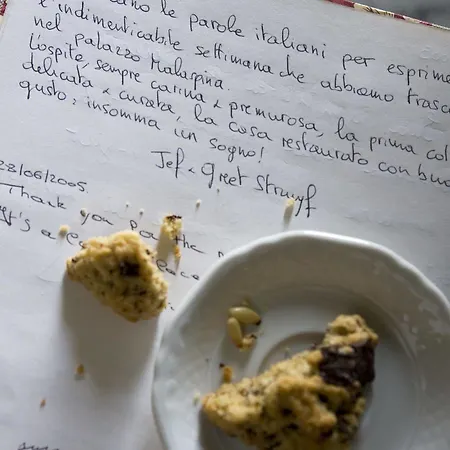 cano le parole italiani per esprime
è indimenticabile settimana che abbiamo trasc
nel palazzo Malaspina.
L'ospite, sempre carina & premurosa, la prima col
delicata & curata, la casa restaurato con buo
gusto: insomma un sogno!
Jef & Greet Struyf
28/06/2005
Thank you for the
It's a